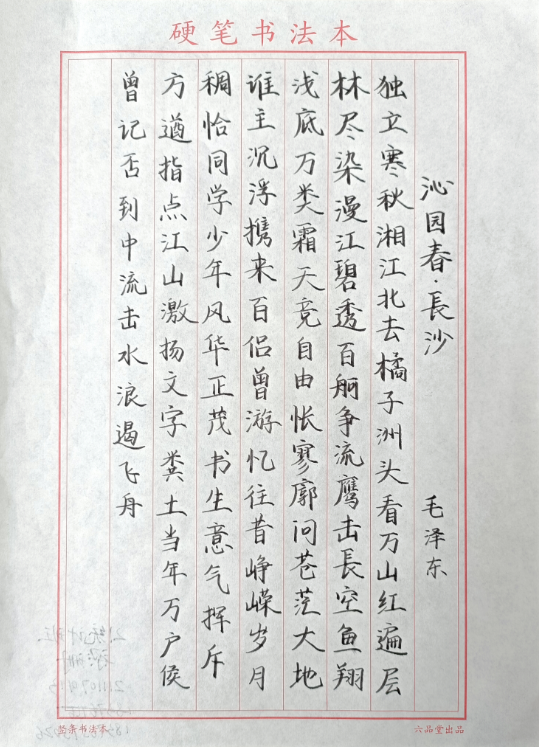 硬笔书法本
沁园春·長沙 毛泽东
独立寒秋湘江北去橘子洲头看万山红遍层
林尽染漫江碧透百舸争流鹰击長空鱼翔
浅底万类霜天竞自由怅寥廓问苍茫大地
谁主沉浮携来百侣曾游忆往昔峥嵘岁月
稠恰同学少年风华正茂书生意气挥斥
方遒指点江山激扬文字粪土当年万户侯
曾记否到中流击水浪遏飞舟
竖条书法本
六品堂出品